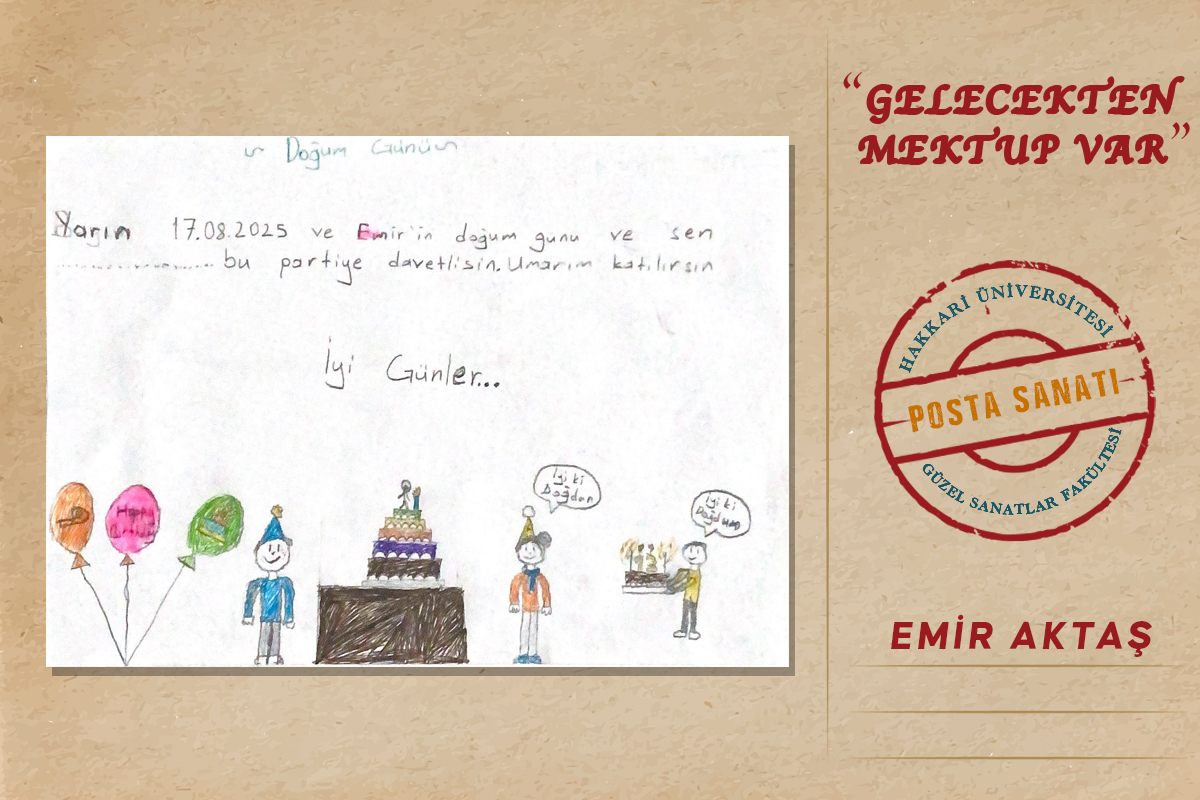 ~ Doğum Günü ~
Yarın 17.08.2025 ve Emir'in doğum gunu ve sen
.................... bu partiye davetlisin. Umarım katılırsın
İyi Günler...
İyi ki
Doğdan
İyi ki
Happy
13
“GELECEKTEN
MEKTUP VAR”
HAKKARİ ÜNİVERSİTESİ
POSTA SANATI
GÜZEL SANATLAR FAKÜLTESİ
EMİR AKTAŞ